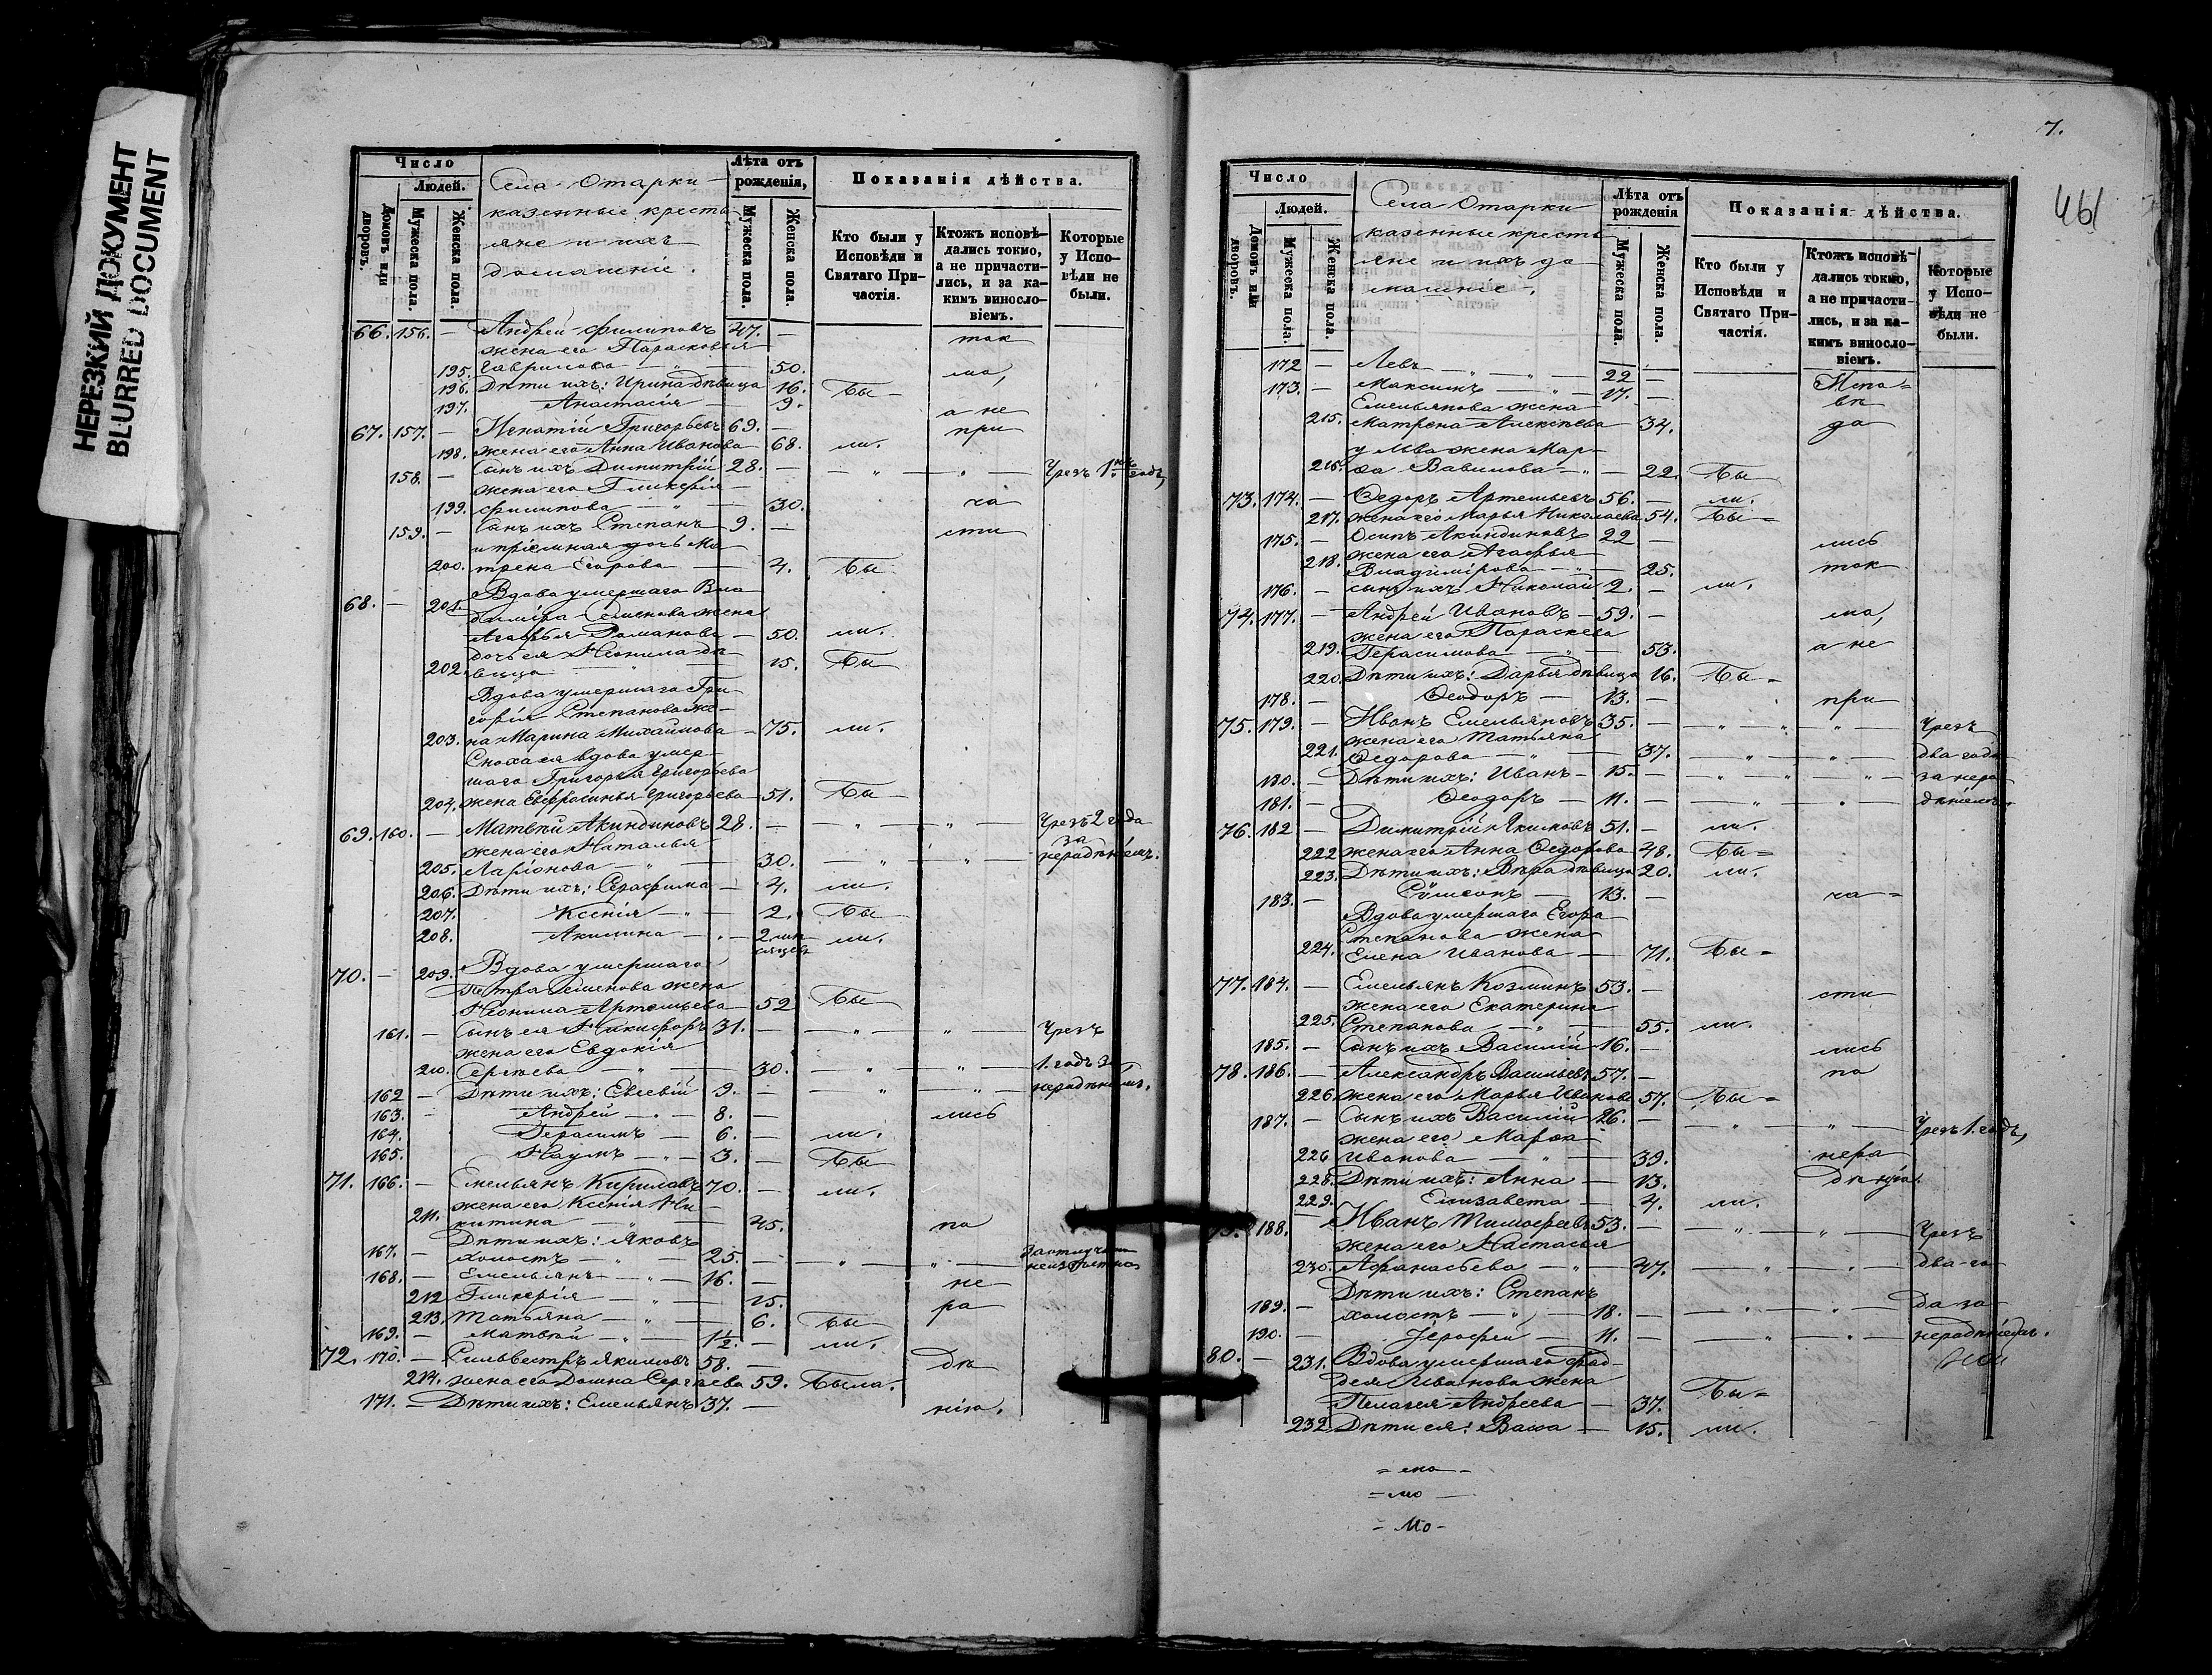 НЕРЕЗКИЙ ДОКУМЕНТ
BLURRED DOCUMENT
Число
Людей.
Домовъ или дворовъ.
Мужеска пола.
Женска пола.
Села Отарки
казенные кресть
яне и ихъ
домашніе.
Лѣта отъ рожденія,
Мужеска пола.
Женска пола.
Показанія дѣйства.
Кто были у Исповѣди и Святаго Причастія.
Ктожъ исповѣдались токмо, а не причастились, и за какимъ винословіемъ.
Которые у Исповѣди не были.
66. 156. — Андрей Филиповъ 47. —
жена его Парасковья ток
195. Гавриlова — 50. мо,
196. Дѣти ихъ: Ирина дѣвица 16. Бы
197. Анастасія — 9.
а не
67. 157. — Игнатій Григорьевъ 69. — при
198. жена его Анна Иванова 68. ли.
158. — Сынъ ихъ Димитрій 28. — Чрезъ 1 годъ,
жена его Гликерія
199. Филипова — 30. ча
159. — Сынъ ихъ Степанъ 9. — сти
и пріемная дочь Ма
200. трена Егорова — 4. Бы
68. — 201. Вдова умершаго Вла
диміра Семенова жена
Агафья Романова — 50. ли.
202. дочь ея Неонила дѣ
вица 15. Бы
Вдова умершаго Гри
горія Степанова же
203. на Марина Михайлова — 75. ли.
Сноха ея вдова умер
шаго Григорья Григорьева
204. жена Евфросинья Григорьева — 51. Бы
69. 160. — Матвѣй Акиндиновъ 28. — Чрезъ 2 года
жена его Наталья за
205. Ларіонова — 30. нерадѣніемъ.
206. Дѣти ихъ: Серафима — 4. ли.
207. Ксенія — 2. Бы
208. Акилина — 2 мѣ
сяцевъ ли.
70. — 209. Вдова умершаго
Петра Семенова жена
Неонила Артемьева — 52 Бы
161. — Сынъ ея Никифоръ 31. — Чрезъ
жена его Евдокія
210. Сергѣева — 30. 1. годъ за
162 — Дѣти ихъ: Евсевій 9. — нерадѣніемъ.
163. — Андрей — 8. — лись
164. Герасимъ — 6. — ли.
165. Наумъ — 3. — Бы
71. 166. — Емельянъ Кириловъ 70. — ли.
жена его Ксенія Ни
211. китина — 45. по
Дѣти ихъ: Яковъ
167. — холостъ — 25. —
168. — Емельянъ — 16. — не
212 Гликерія — 15. ра
213. Татьяна — 6. Бы
169. — Матвѣй — 1½. — ли.
72. 170. — Сильвестръ Якимовъ 58. — дѣ
214. жена его Домна Сергѣева 59. Была.
171. — Дѣти ихъ: Емельянъ 37. — нію.
7.
461
Число
Людей.
Домовъ или дворовъ.
Мужеска пола.
Женска пола.
Села Отарки
казенные кресть
яне и ихъ до
машніе.
Лѣта отъ рожденія
Мужеска пола.
Женска пола.
Показанія дѣйства.
Кто были у Исповѣди и Святаго Причастія.
Ктожъ исповѣдались токмо, а не причастились, и за какимъ винословіемъ.
Которые у Исповѣди не были.
172 — Левъ — 22 — Испо
173. — Максимъ — 17. — вѣ
Емельянова жена
215. Матрена Алексѣева 34. да
у Льва жена Мар
216. ѳа Вавилова — 22. Бы
73. 174. — Ѳедоръ Артемьевъ 56. — ли.
217. жена его Марья Николаева 54. Бы
175. — Осипъ Акиндиновъ 22 — лись
жена его Агафья
218. Владимірова — 25. ток
176. — сынъ ихъ Николай 2. — ли.
74. 177. — Андрей Ивановъ — 59. — мо,
жена его Параскева
219. Герасимова — 53. а не
220. Дѣти ихъ: Дарья дѣвица 16. Бы
178. — Ѳеодоръ — 13. — при
75. 179. — Иванъ Емельяновъ 35. — Чрезъ
жена его Татьяна
221. Ѳедорова — 37. два года
180. — Дѣти ихъ: Иванъ — 15. — за нера
181. — Ѳеодоръ — 11. — дѣніемъ.
76. 182 — Димитрій Якимовъ 51. — ли.
222 жена его Анна Ѳедорова 48. Бы
223. Дѣти ихъ: Вѣра дѣвица 20. ли.
183. — Сѵмеонъ — 13. — ча
Вдова умершаго Егора
Степанова жена
224. Елена Иванова — 71. Бы
77. 184. — Емельянъ Козминъ 53. — сти
жена его Екатерина
225. Степанова — 55. ли.
185. — Сынъ ихъ Василій 16. — лись
78. 186. — Александръ Васильевъ 57. — по
226. жена его Марья Иванова 57. Бы
187. — Сынъ ихъ Василій 26. — Чрезъ 1. годъ,
жена его Марѳа
226 Иванова — 39. нера
228. Дѣти ихъ: Анна — 13. дѣнію.
229. Елизавета — 4. ли.
79. 188. — Иванъ Тимофеевъ 53. — Чрезъ
жена его Настасья
230. Афанасьева — 47. два го
Дѣти ихъ: Степанъ
189. — холостъ — 18. — да за
190. — Іерофей — 11. — нерадѣніемъ.
80. — 231. Вдова умершаго Фад
дея Иванова жена
Пелагея Андреева — 37. Бы
232 Дѣти ея: Васса — 15. ли.